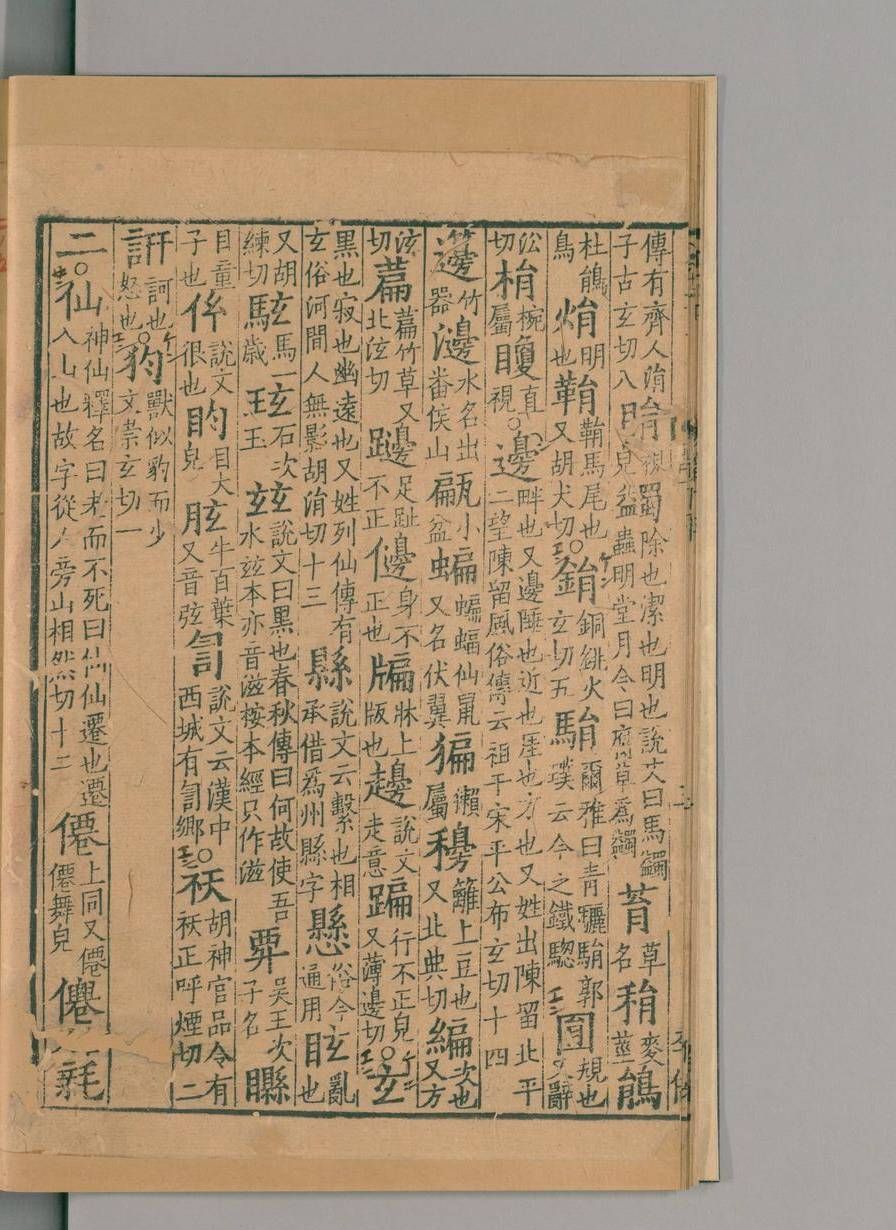 傳有齊人涓子古玄切八睊視皃蠲除也潔也明也說文曰馬蠲蟲明堂月令曰腐草為蠲草名䅌麥莖鵑
杜鵑鳥焆明也鞙鞙馬尾也又胡犬切鋗銅銚火玄切五駽爾雅曰青驪駽郭璞云今之鐵驄規也又辭
沿切梋椀屬矎直視邊畔也又邊陲也近也厓也方也又姓出陳留北平二望陳留風俗傳云祖于宋平公布玄切十四
籩竹器水名出番侯山甂小盆蝙蝙蝠仙鼠又名伏翼猵獺屬籬上豆也又北典切編次也又方
泫切萹萹竹草又北泫切足趾不正身不正也牑牀上版也說文走意蹁行不正皃又薄邊切玄
黑也寂也幽遠也又姓列仙傳有玄俗河間人無影胡涓切十三縣說文云繫也相承借為州縣字懸俗今通用眩亂也
又胡練切馬一歲玹石次玉玆說文曰黑也春秋傳曰何故使吾水玆本亦音滋按本經只作滋吳王次子名
目童子也伭說文很也盷目大皃胘牛百葉又音弦訇說文云漢中西城有訇鄉祆胡神官品令有祆正呼煙切二
訮訶也怒也獸似豹而少文崇玄切一
二仙神仙釋名曰老而不死曰仙仙遷也遷入山也故字從人旁山相然切十二僊上同又僊僊舞皃